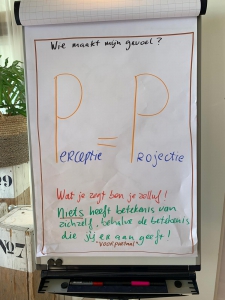 Wie maakt mijn gevoel?
P = P
erceptie rojectie
Wat je zegt ben je zelluf!
Niets heeft betekenis van
zichzelf, behalve de betekenis
die jij er aan geeft!
No7